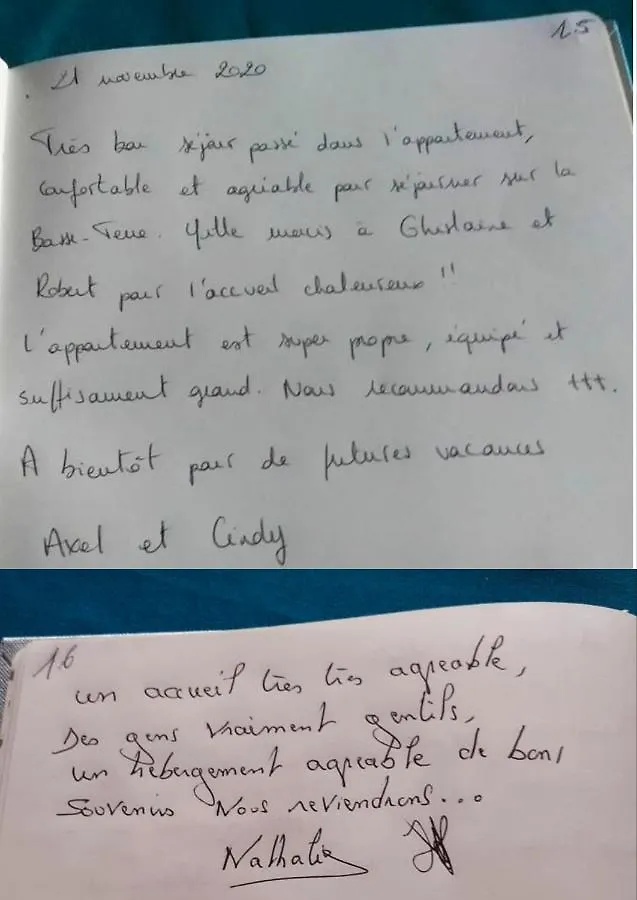 15
21 novembre 2020
Très bon séjour passé dans l'appartement,
confortable et agréable pour séjourner sur la
Basse-Terre. Mille mercis à Ghislaine et
Robert pour l'accueil chaleureux !!
L'appartement est super propre, équipé et
suffisament grand. Nous recommandons +++.
A bientôt pour de futures vacances
Axel et Cindy
16
un accueil très très agréable,
Des gens vraiment gentils,
un hébergement agréable de bons
souvenirs Nous reviendrons...
Nathalie